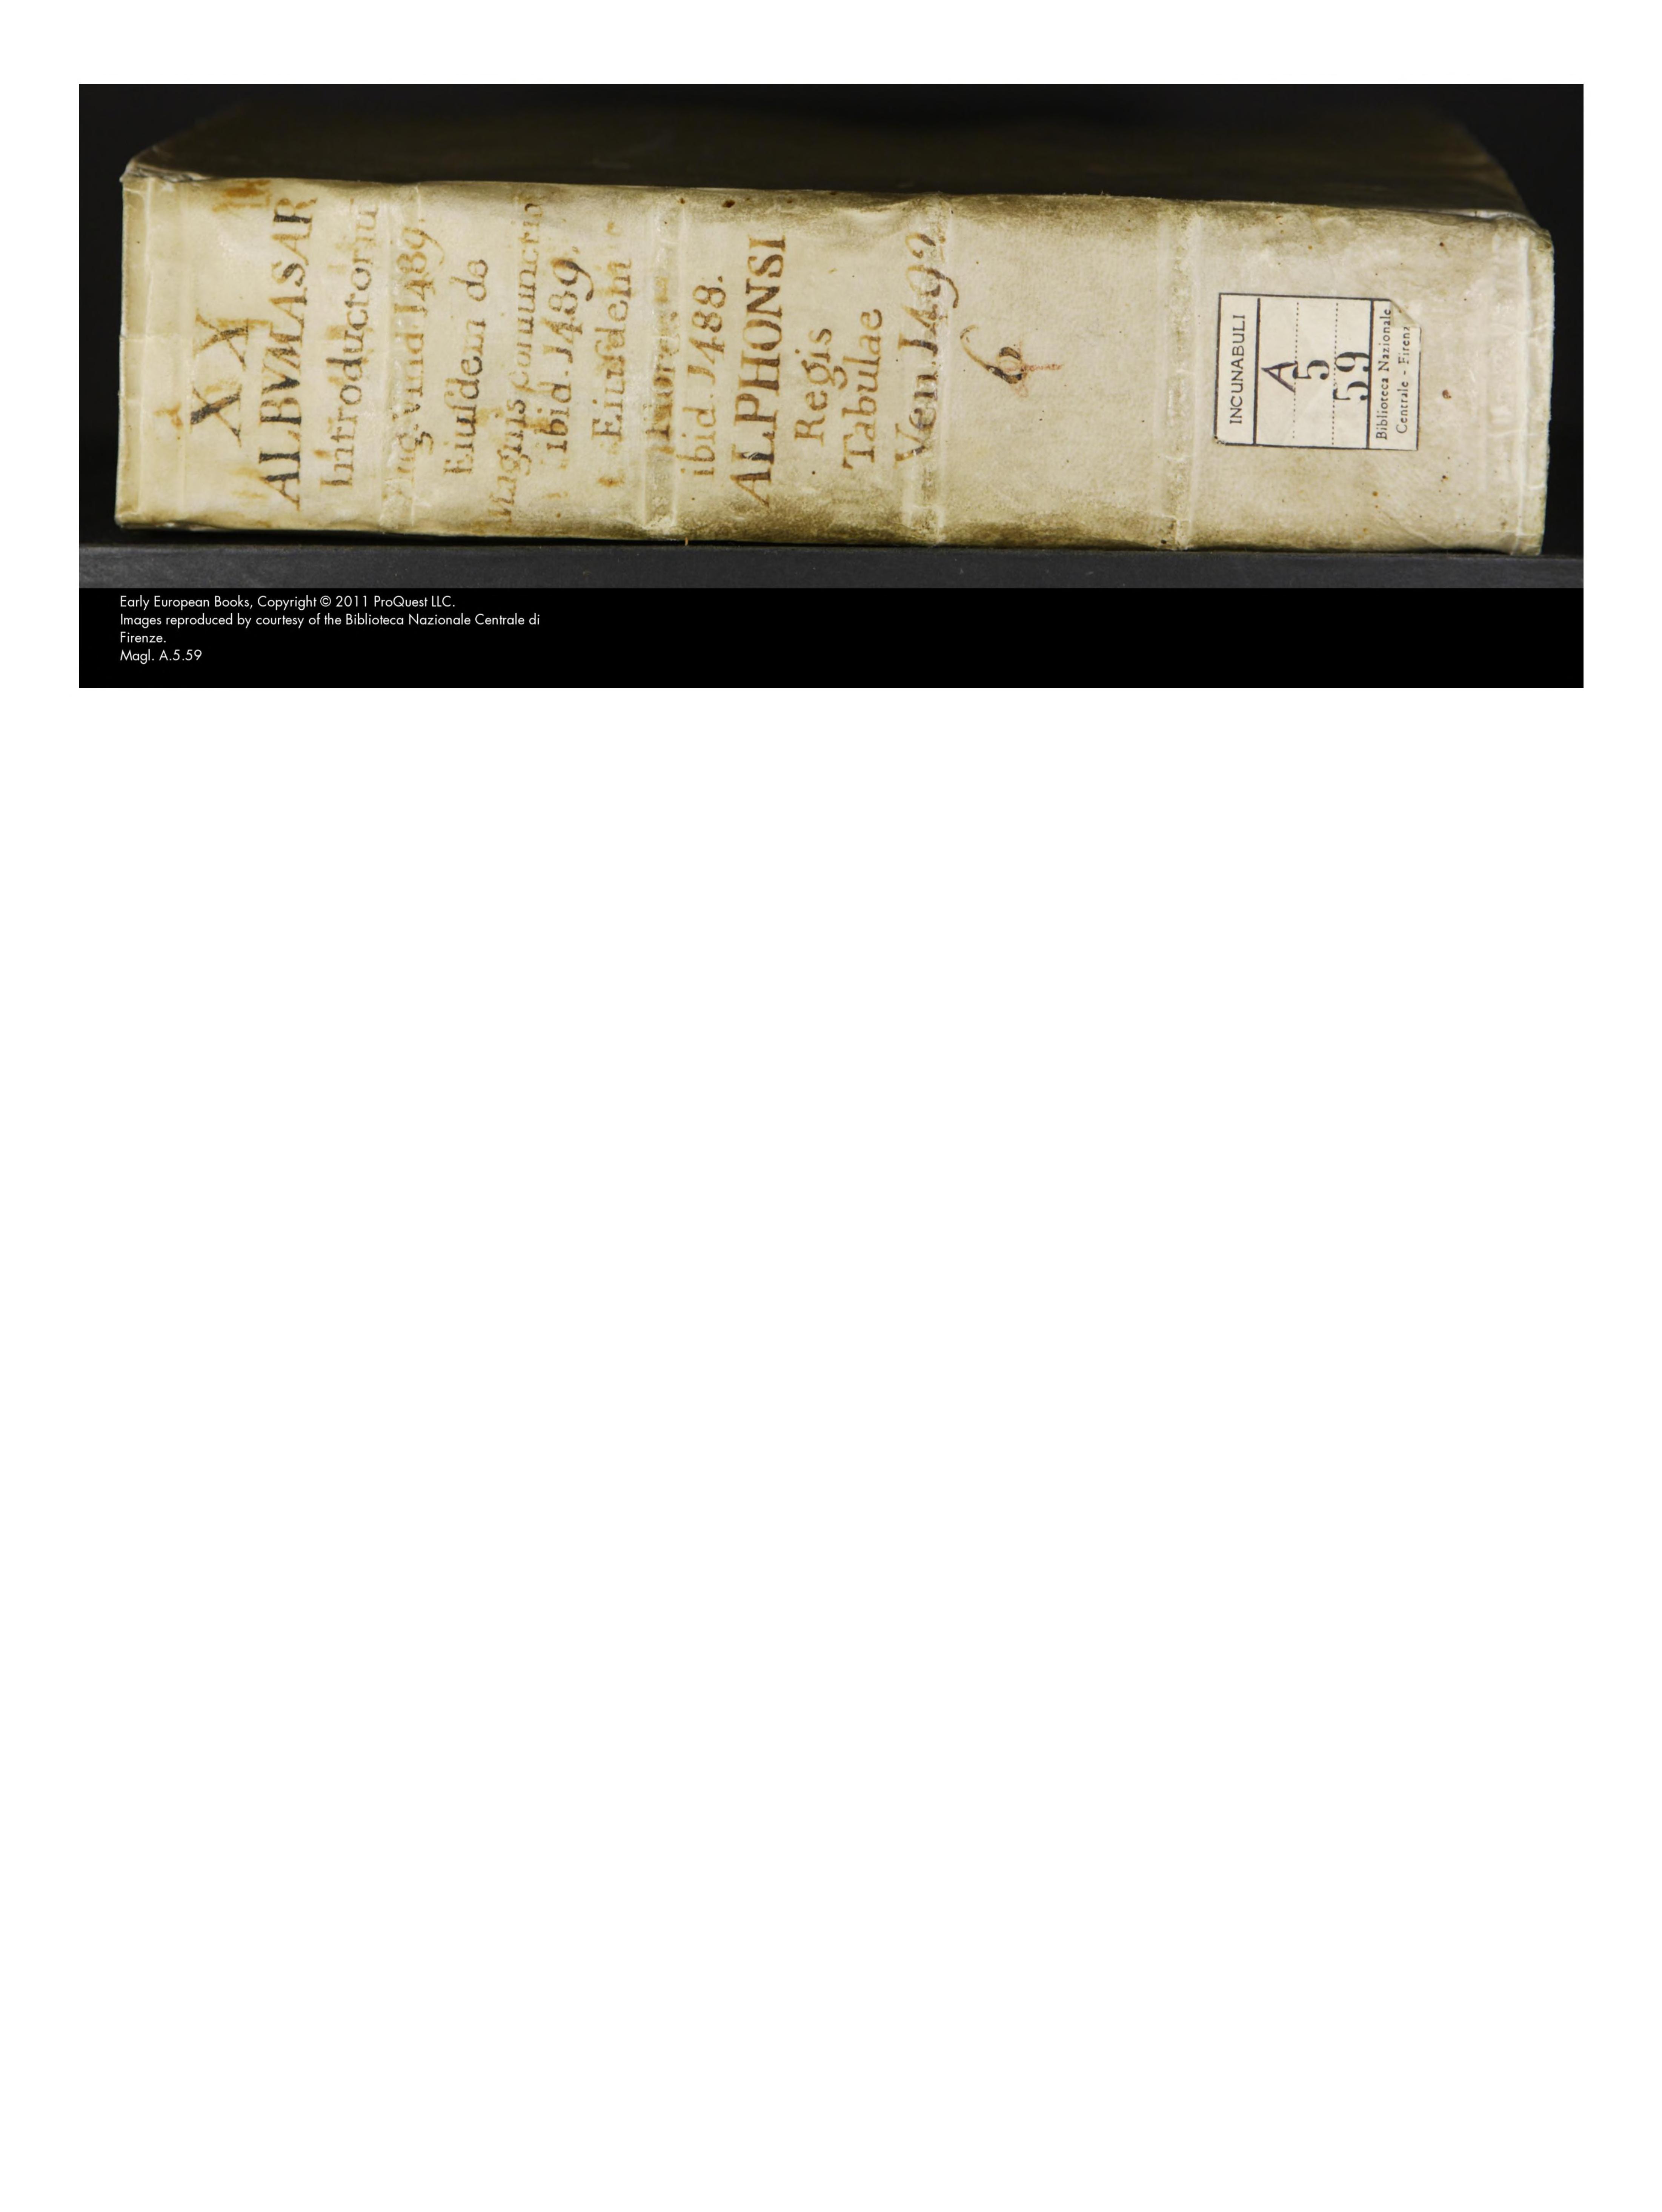 XX
ALBVMASAR
Introductoriu
Vind 1489.
Eiusdem de
Magnis Coniunctio
ibid. 1489.
Eiusdem
Flores
ibid. 1488.
ALPHONSI
Regis
Tabulae
Ven. 1492
6
INCUNABULI
A
5
59
Biblioteca Nazionale
Centrale - Firenz
Early European Books, Copyright © 2011 ProQuest LLC.
Images reproduced by courtesy of the Biblioteca Nazionale Centrale di
Firenze.
Magl. A.5.59